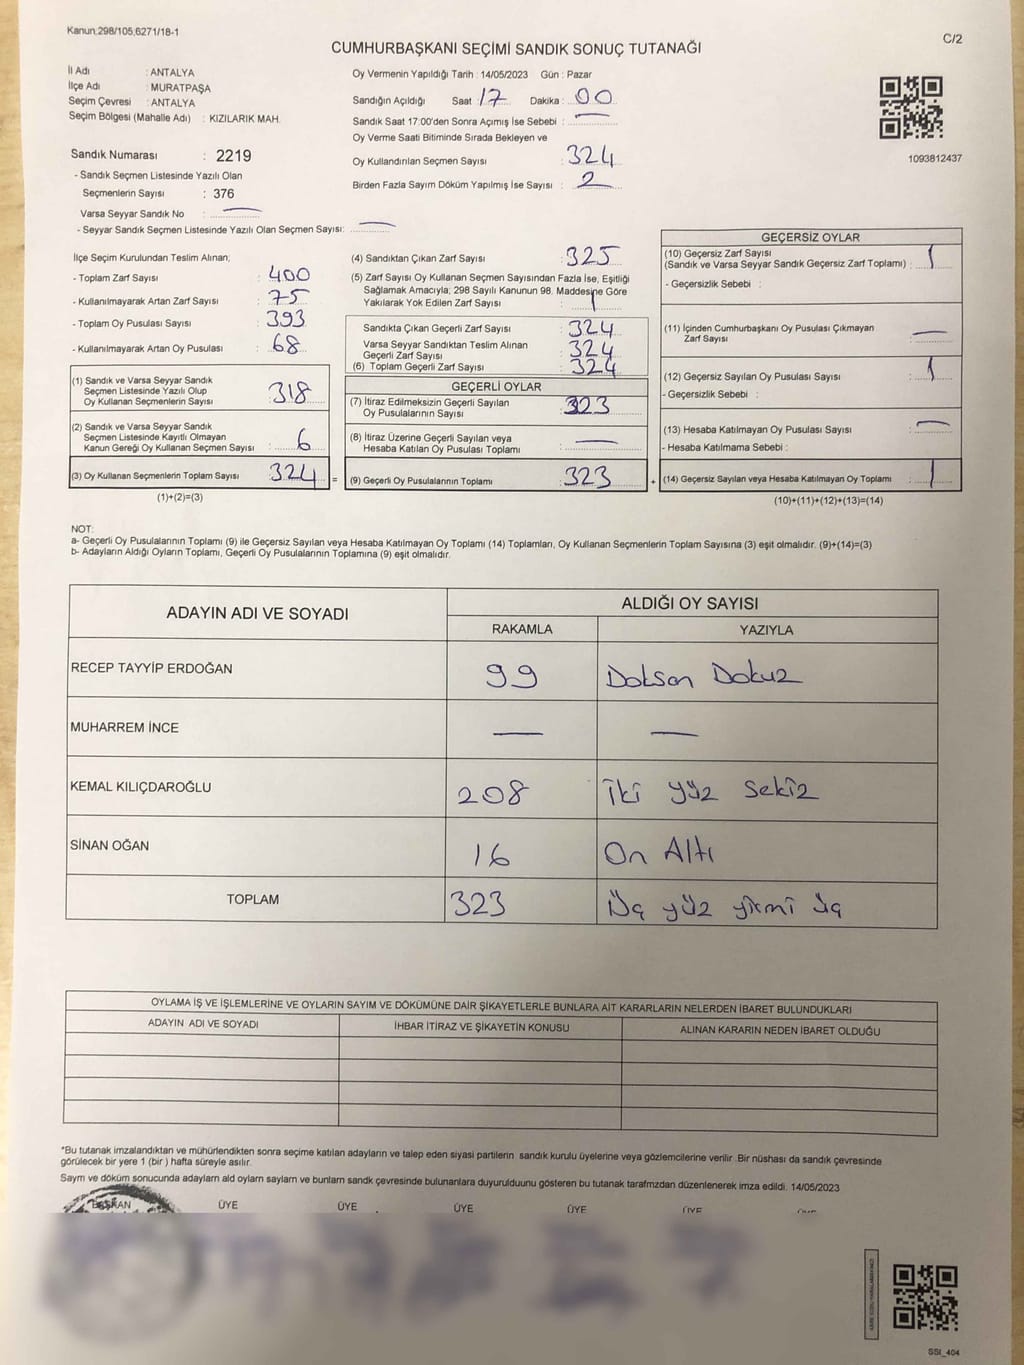 Kanun;298/105,6271/18-1
C/2
CUMHURBAŞKANI SEÇİMİ SANDIK SONUÇ TUTANAĞI
İl Adı : ANTALYA
İlçe Adı : MURATPAŞA
Seçim Çevresi : ANTALYA
Seçim Bölgesi (Mahalle Adı) : KIZILARIK MAH.
Sandık Numarası : 2219
- Sandık Seçmen Listesinde Yazılı Olan
Seçmenlerin Sayısı : 376
Varsa Seyyar Sandık No : —
- Seyyar Sandık Seçmen Listesinde Yazılı Olan Seçmen Sayısı: —
Oy Vermenin Yapıldığı Tarih : 14/05/2023 Gün : Pazar
Sandığın Açıldığı Saat : 17 Dakika : 00
Sandık Saat 17:00'den Sonra Açımış İse Sebebi : —
Oy Verme Saati Bitiminde Sırada Bekleyen ve
Oy Kullandırılan Seçmen Sayısı : 324
Birden Fazla Sayım Döküm Yapılmış İse Sayısı : 2
1093812437
İlçe Seçim Kurulundan Teslim Alınan;
- Toplam Zarf Sayısı : 400
- Kullanılmayarak Artan Zarf Sayısı : 75
- Toplam Oy Pusulası Sayısı : 393
- Kullanılmayarak Artan Oy Pusulası : 68
(1) Sandık ve Varsa Seyyar Sandık
Seçmen Listesinde Yazılı Olup
Oy Kullanan Seçmenlerin Sayısı : 318
(2) Sandık ve Varsa Seyyar Sandık
Seçmen Listesinde Kayıtlı Olmayan
Kanun Gereği Oy Kullanan Seçmen Sayısı : 6
(3) Oy Kullanan Seçmenlerin Toplam Sayısı : 324
(1)+(2)=(3)
(4) Sandıktan Çıkan Zarf Sayısı : 325
(5) Zarf Sayısı Oy Kullanan Seçmen Sayısından Fazla İse, Eşitliği
Sağlamak Amacıyla; 298 Sayılı Kanunun 98. Maddesine Göre
Yakılarak Yok Edilen Zarf Sayısı : 1
Sandıkta Çıkan Geçerli Zarf Sayısı : 324
Varsa Seyyar Sandıktan Teslim Alınan
Geçerli Zarf Sayısı : 324
(6) Toplam Geçerli Zarf Sayısı : 324
GEÇERLİ OYLAR
(7) İtiraz Edilmeksizin Geçerli Sayılan
Oy Pusulalarının Sayısı : 323
(8) İtiraz Üzerine Geçerli Sayılan veya
Hesaba Katılan Oy Pusulası Toplamı : —
=
(9) Geçerli Oy Pusulalarının Toplamı : 323
+
GEÇERSİZ OYLAR
(10) Geçersiz Zarf Sayısı
(Sandık ve Varsa Seyyar Sandık Geçersiz Zarf Toplamı) : 1
- Geçersizlik Sebebi :
(11) İçinden Cumhurbaşkanı Oy Pusulası Çıkmayan
Zarf Sayısı : —
(12) Geçersiz Sayılan Oy Pusulası Sayısı : 1
- Geçersizlik Sebebi :
(13) Hesaba Katılmayan Oy Pusulası Sayısı : —
- Hesaba Katılmama Sebebi :
(14) Geçersiz Sayılan veya Hesaba Katılmayan Oy Toplamı : 1
(10)+(11)+(12)+(13)=(14)
NOT:
a- Geçerli Oy Pusulalarının Toplamı (9) ile Geçersiz Sayılan veya Hesaba Katılmayan Oy Toplamı (14) Toplamları, Oy Kullanan Seçmenlerin Toplam Sayısına (3) eşit olmalıdır. (9)+(14)=(3)
b- Adayların Aldığı Oyların Toplamı, Geçerli Oy Pusulalarının Toplamına (9) eşit olmalıdır.
ADAYIN ADI VE SOYADI
ALDIĞI OY SAYISI
RAKAMLA YAZIYLA
RECEP TAYYİP ERDOĞAN 99 Doksan Dokuz
MUHARREM İNCE — —
KEMAL KILIÇDAROĞLU 208 İki yüz Sekiz
SİNAN OĞAN 16 On Altı
TOPLAM 323 Üç yüz yirmi üç
OYLAMA İŞ VE İŞLEMLERİNE VE OYLARIN SAYIM VE DÖKÜMÜNE DAİR ŞİKAYETLERLE BUNLARA AİT KARARLARIN NELERDEN İBARET BULUNDUKLARI
ADAYIN ADI VE SOYADI İHBAR İTİRAZ VE ŞİKAYETİN KONUSU ALINAN KARARIN NEDEN İBARET OLDUĞU
*Bu tutanak imzalandıktan ve mühürlendikten sonra seçime katılan adayların ve talep eden siyasi partilerin sandık kurulu üyelerine veya gözlemcilerine verilir. Bir nüshası da sandık çevresinde
görülecek bir yere 1 (bir ) hafta süreyle asılır.
Sayım ve döküm sonucunda adayların ald oyların sayların ve bunlam sandk çevresinde bulunanlara duyurulduunu gösteren bu tutanak tarafmzdan düzenlenerek imza edildi. 14/05/2023
BAŞKAN ÜYE ÜYE ÜYE ÜYE ÜYE
SSI_404